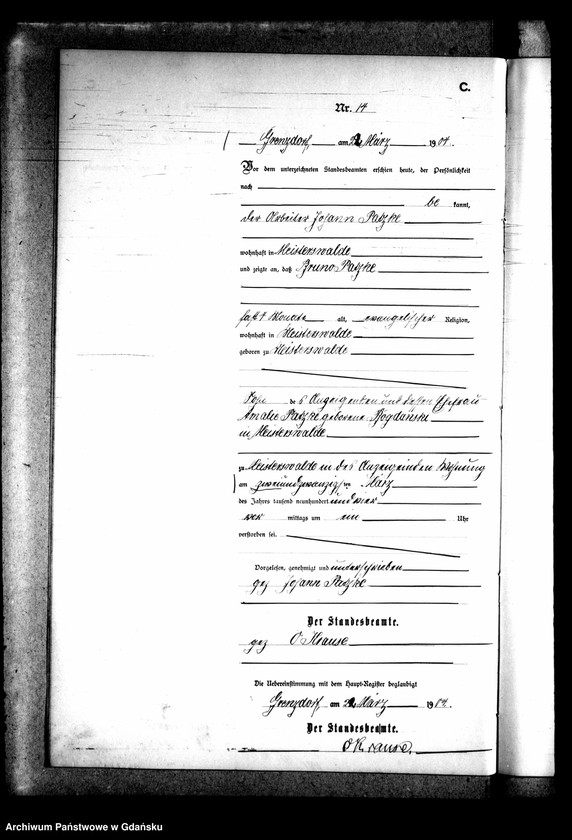 C.
Nr. 14
Grenzdorf, am 22 März 1904.
Vor dem unterzeichneten Standesbeamten erschien heute, der Persönlichkeit
nach
be kannt,
der Arbeiter Johann Patzke
wohnhaft in Meisterswalde
und zeigte an, daß Bruno Patzke
fast Monate alt, evangelischer Religion,
wohnhaft in Meisterswalde
geboren zu Meisterswalde
des Anzeigenden und dessen Ehefrau
Amalie Patzke geborene Bogdanski
in Meisterswalde
zu Meisterswalde in des Anzeigenden Wohnung
am zweiundzwanzigsten März
des Jahres tausend neunhundert und vier
vor mittags um ein Uhr
verstorben sei.
Vorgelesen, genehmigt und unterschrieben
gez Johann Patzke
Der Standesbeamte.
gez O Krause
Die Uebereinstimmung mit dem Haupt-Register beglaubigt
Grenzdorf, am 22 März 1904.
Der Standesbeamte.
O Krause.
Archiwum Państwowe w Gdańsku